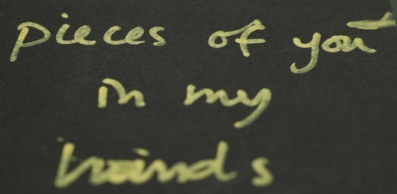 pieces of you
in my
hands